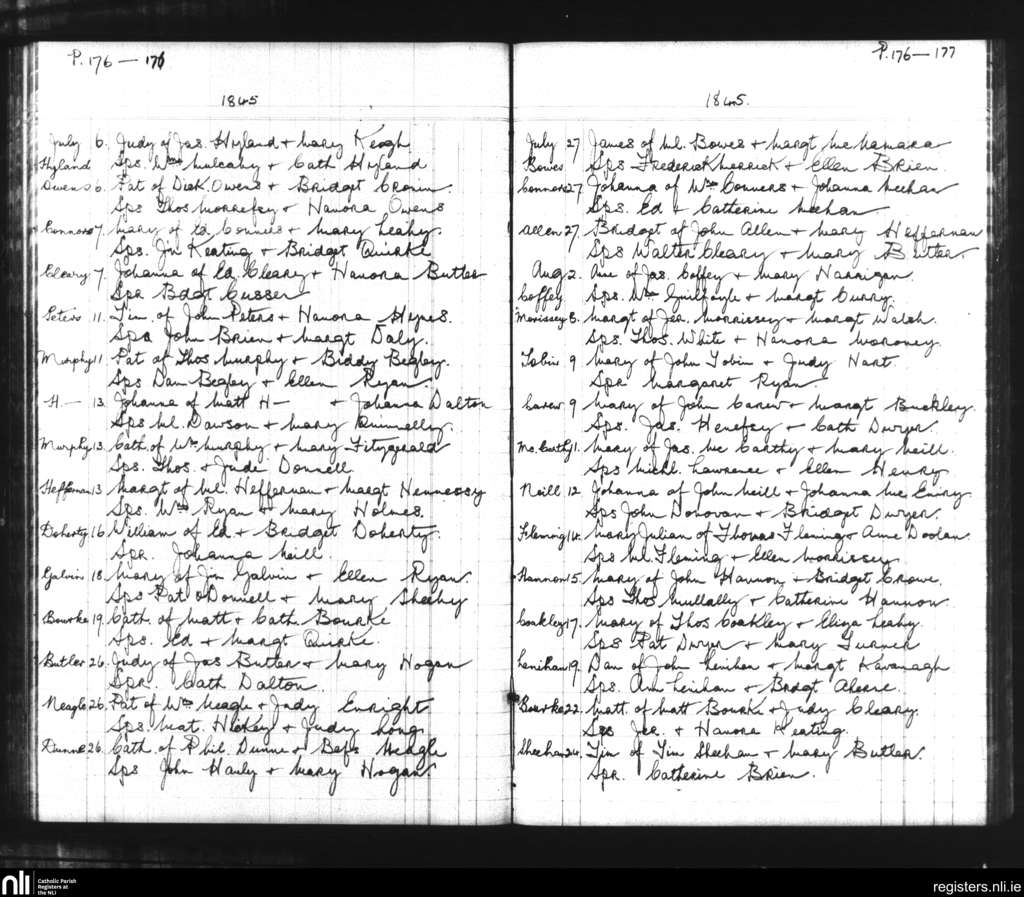 P. 176 — 176
1845
July 6. Judy of Jas. Hyland + Mary Keogh
Hyland Sps. Wm Mulcahy + Cath Hyland
Owens 6. Pat of Dick. Owens + Bridget Cronin.
Sps Thos Morrefsy + Hanora Owens
Connors 7. Mary of Ed Connors + Mary Leahy.
Sps. Jn Keating + Bridget Quirke
Cleary 7. Johanna of Ed. Cleary + Hanora Butler
Spr Bdgt Cusser
Peters 11. Tim. of John Peters + Hanora Hynes.
Sps John Brien + Margt Daly.
Murphy 11 Pat of Thos Murphy + Biddy Begley.
Sps Dan Begley + Ellen Ryan.
H — 13. Johanna of Matt H— + Johanna Dalton
Sps Ml. Dawson + Mary Quinnelly.
Murphy 13. Cath. of Wm Murphy + Mary Fitzgerald
Sps. Thos. + Jude Donnell
Heffernan 13 Margt of Ml. Heffernan + Margt Hennessy
Sps. Wm Ryan + Mary Holmes.
Doherty 16 William of Ed + Bridget Doherty.
Spr. Johanna Neill.
Galvin 18. Mary of Jn Galvin + Ellen Ryan.
Sps Pat O'Donnell + Mary Sheehy
Bourke 19. Cath. of Matt + Cath. Bourke
Sps. Ed + Margt Quirke.
Butler 26. Judy of Jas Butler + Mary Hogan
Spr. Cath Dalton.
Neagle 26. Pat of Wm Neagle + Judy Enright
Sps. Mat. Hickey + Judy Long.
Dunne 26. Cath. of Phil. Dunne + Befs Neagle
Sps John Hanly + Mary Hogan
P. 176 — 177
1845.
July 27 James of Ml. Bowes + Margt McNamara
Bowes Sps Frederick Merrick + Ellen Brien
Connors 27 Johanna of Wm Connors + Johanna Meehan
Sps. Ed + Catherine Meehan
Allen 27. Bridget of John Allen + Mary Heffernan
Sps Walter Cleary + Mary Butler.
Aug 2. Ann of Jas. Coffey + Mary Harrigan.
Coffey. Sps. Wm Guilfoyle + Margt Curry.
Morissey 5. Margt of Jer. Morrissey + Margt Walsh.
Sps. Thos. White + Hanora Moroney.
Tobin 9 Mary of John Tobin + Judy Hart.
Spr. Margaret Ryan
Carew 9 Mary of John Carew + Margt Buckley.
Sps. Jas. Henefsy + Cath Dwyer.
McCarthy 11. Mary of Jas. McCarthy + Mary Neill.
Sps Michl. Lawrence + Ellen Henry
Neill 12. Johanna of John Neill + Johanna McEniry.
Sps John Donovan + Bridget Dwyer.
Fleming 14. Mary Julian of Thomas Fleming + Anne Doolan.
Sps Ml. Fleming + Ellen Morrissey.
Hannon 15. Mary of John Hannon + Bridget Crowe.
Sps Thos Mullally + Catherine Hannon.
Coakley 17. Mary of Thos Coakley + Eliza Leahy.
Sps Pat Dwyer + Mary Turner
Lenihan 19. Dan of John Lenihan + Margt Kavanagh
Sps. Ann Lenihan + Bridgt Aherne.
Bourke 22. Matt. of Matt Bourke + Judy Cleary.
Sps Jer. + Hanora Keating.
Sheehan 24. Tim of Tim Sheehan + Mary Butler.
Spr. Catherine Brien.
nli Catholic Parish
Registers at
the NLI
registers.nli.ie